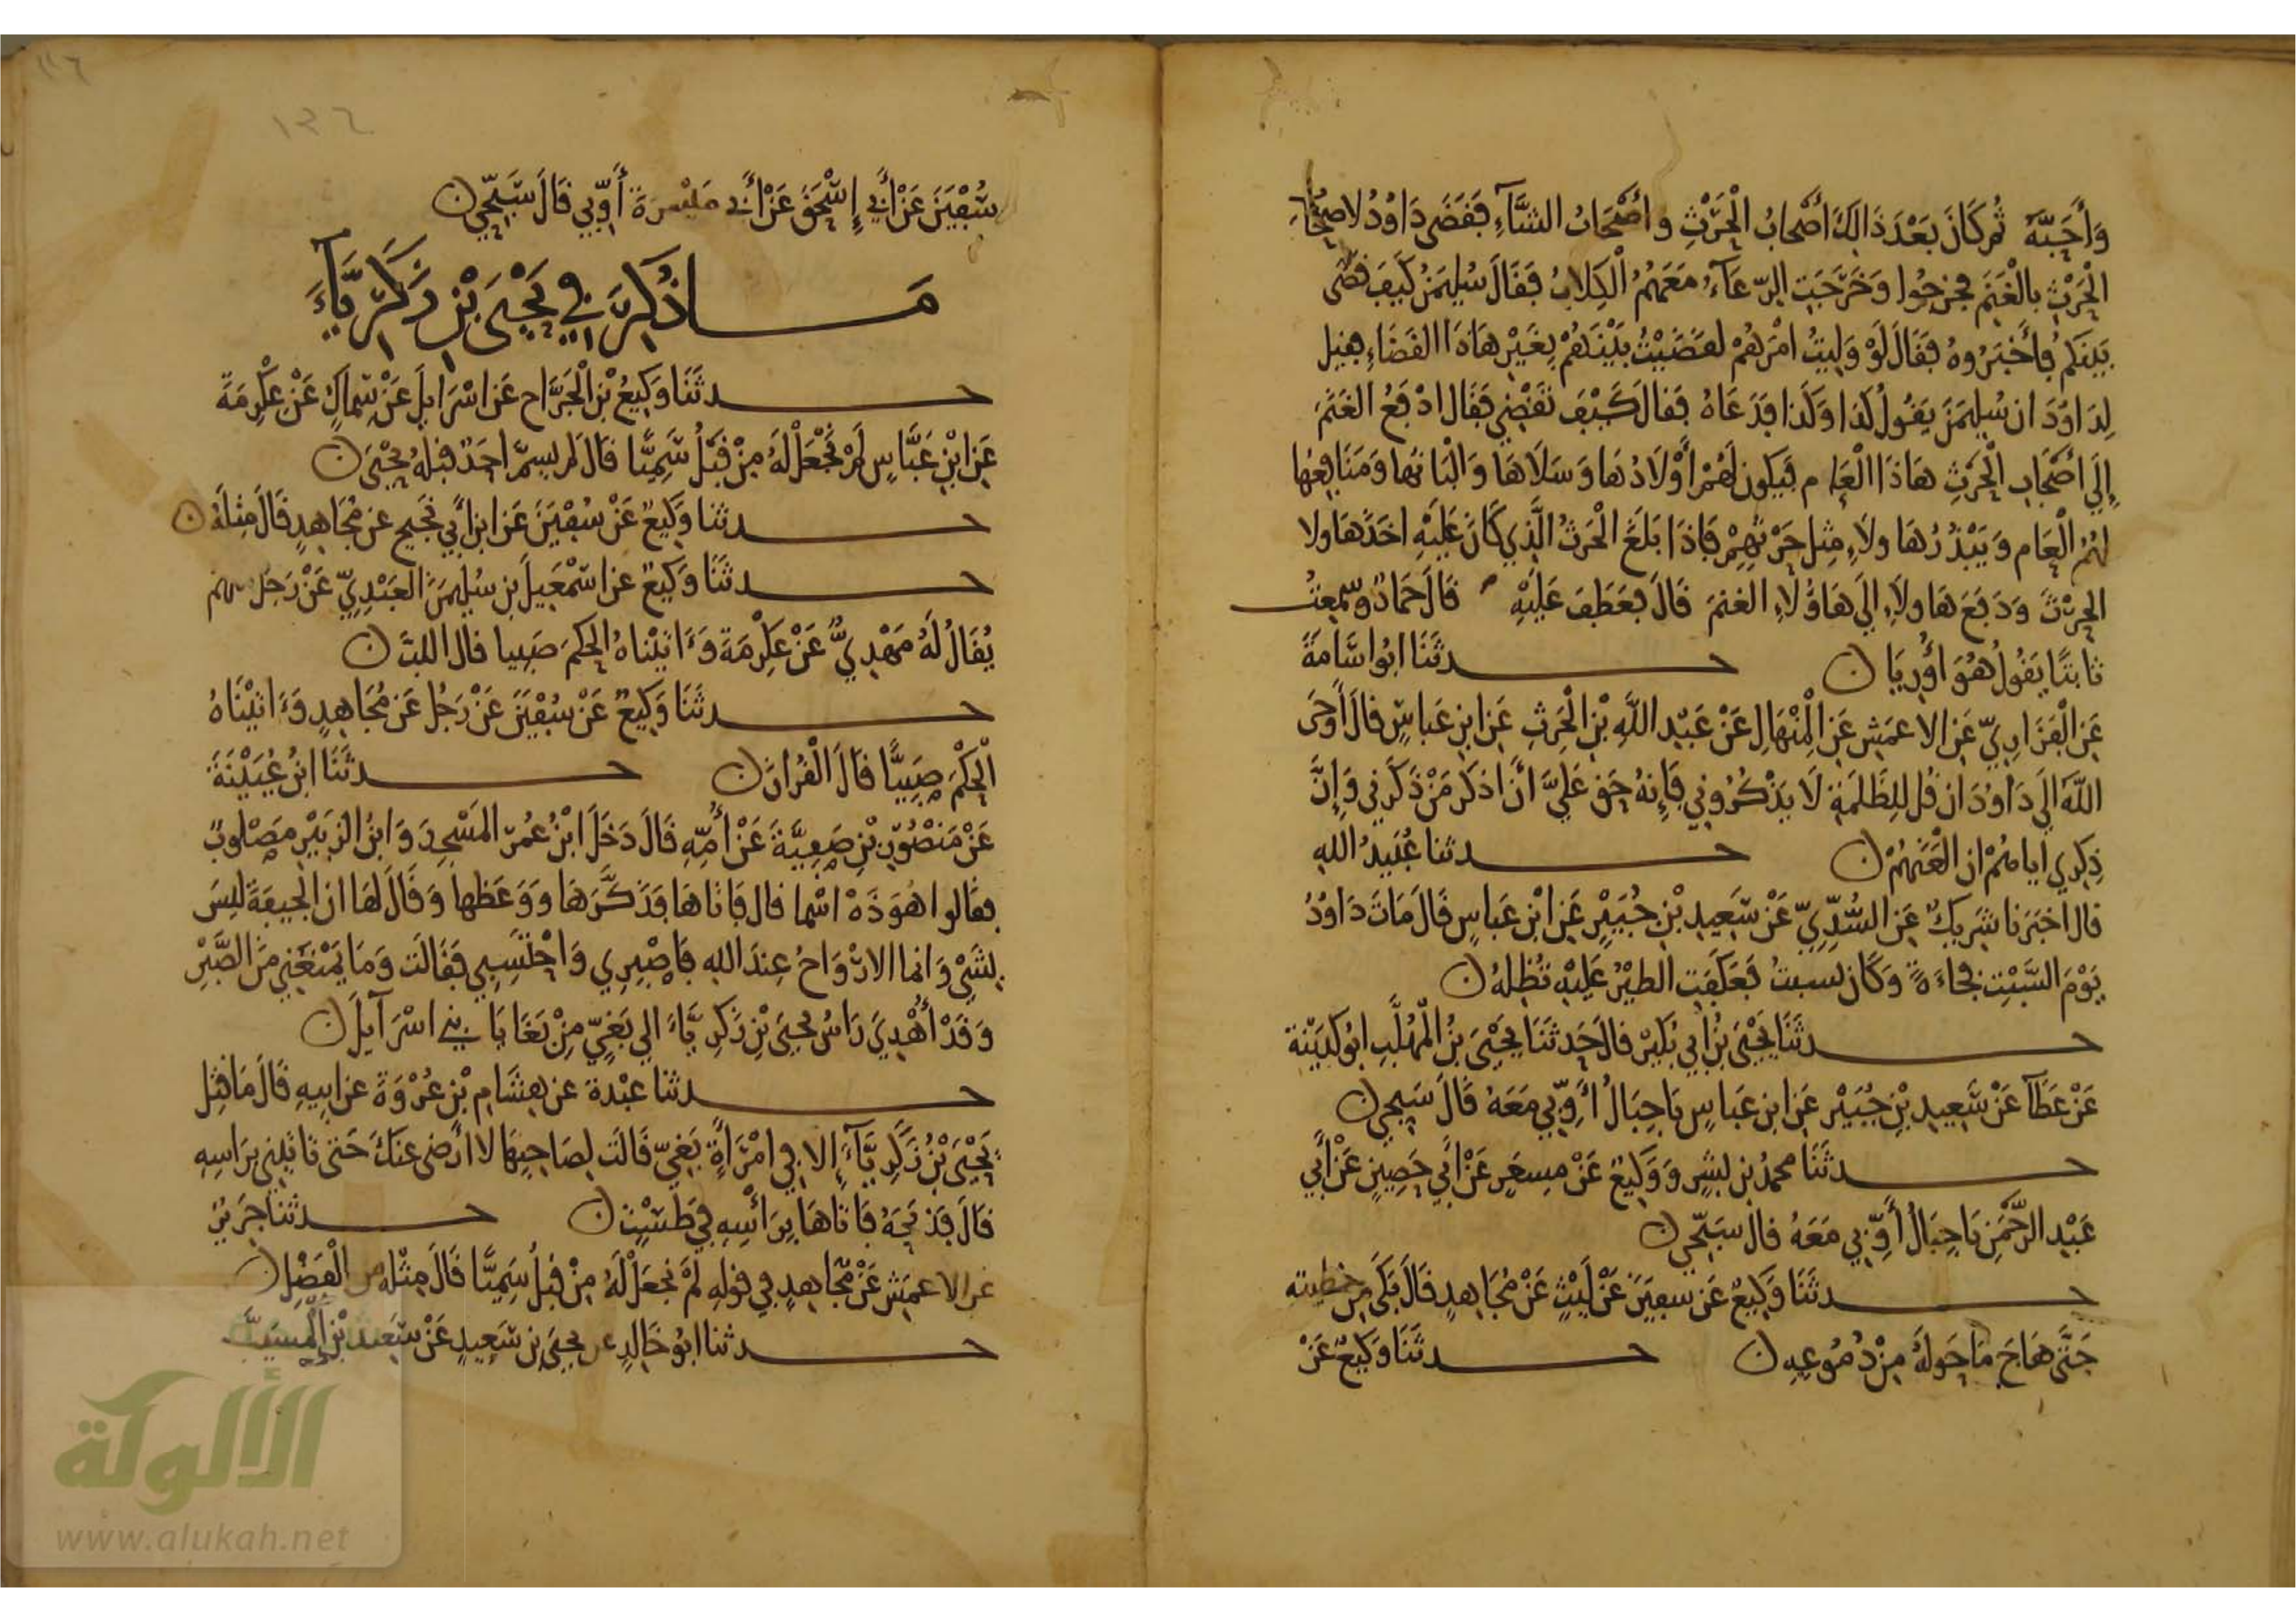 وَأَحَبَّهُ ثُمَّ كَانَ بَعْدَ ذَالِكَ أَصْحَابُ الْحَرْثِ وأَصْحَابُ الشَّآءِ فَقَضَى دَاوُدُ لأَصْحَابِ
الْحَرْثِ بِالْغَنَمِ فخرجُوا وَخَرَجَتِ الرِّعَآءُ مَعَهُمُ الْكِلَابُ فَقَالَ سُلَيمَنُ كَيفَ قضَى
بَينَكم فَأَخْبَرُوهُ فَقَالَ لَوْ وَلِيتُ امْرَهُمْ لَقَضَيْتُ بَيْنَهُمْ بِغَيْرِ هَاذَا القَضَاءِ فقيل
لِدَاوُدَ ان سُلَيمَنَ يَقُولُ كَذَا وَكَذا فَدَعَاهُ فقالَ كَيْفَ تَقْضِي فَقَالَ ادْفَعُ الغَنَمَ
إِلَى أَصْحَابِ الْحَرْثِ هَاذَا الْعَام فَيَكون لَهُمْ أَوْلَادُهَا وَسَلَاهَا وَالْبَانهَا وَمَنَافِعُهَا
لهُمُ الْعَام وَيَبْذُرُ هَاولَاءِ مِثل حَرْثِهِمْ فَاذَا بَلَغَ الْحَرثُ الَّذِي كَانَ عَلَيْهِ اخَذَ هَاولا
الحرْثَ وَدَفَعَ هَاولَاءِ الَى هَاؤُلَاءِ الغنمَ قَالَ فعَطَفَ عَلَيْهِ قَالَ حَمَّادٌ وسَمِعتُ
ثَابتًا يَقُولُ هُوَ أُورِيَا ن حدثَنَا ابُو اسَامَةَ
عَنِ الْفَزَارِيِّ عَنِ الاعمَشِ عَنِ الْمِنْهَالِ عَنْ عَبْدِ اللَّهِ بْنِ الْحَرثِ عَنِ ابنِ عَباسٍ قالَ أَوحَى
اللَّهُ الَى دَاوُدَ ان قُل لِلظَّلَمَةِ لَا يَذْكُرُونِي فَإِنهُ حَق عَلَيَّ أَنْ اذكُرَ مَنْ ذَكَرَنِي وَإِنَّ
ذِكرِي اياهُمْ ان الْعَنَهُمْ ن حدثنا عُبَيدُ اللهِ
قال اخبَرَنا شَرِيكٌ عَنِ السُّدِّيِّ عَنْ سَعِيدِ بْنِ جُبَيْرٍ عَنِ ابْنِ عَباسٍ قَالَ مَاتَ دَاوُدُ
يَوْمَ السَّبْتِ فجاءَةً وَكَانَ يسبتُ فَعَكَفَتِ الطيْرُ عَلَيْهِ تُظِلهُ ن
حدثَنَا يَحْيَى بْنُ أَبِي بُكَيْرٍ قالَ حَدثَنَا يَحْيَى بنُ الْمُهَلَّبِ ابُو كُدَيْنَة
عَنْ عَطَآ عَنْ سَعِيدِ بْنِ جُبَيْرٍ عَنِ ابنِ عَباسٍ يَاجِبَالُ أَوِّبِي مَعَهُ قَالَ سَبِّحِي ن
حدثَنَا محمدُ بن بِشرٍ وَوَكِيعٌ عَنْ مِسعَرٍ عَنْ أَبِي حَصِينٍ عَنْ أَبِي
عَبْدِ الرَّحْمَنِ يَاجِبَالُ أَوِّبِي مَعَهُ قالَ سَبِّحِي ن
حدثَنَا وَكِيعٌ عَن سفيَنَ عَنْ لَيْثٍ عَنْ مُجَاهِدٍ قَالَ بَكَى مِن خطيته
حَتَّى هَاجَ مَا حَولَهُ مِنْ دُمُوعِهِ ن حدثَنَا وَكِيعٌ عَنْ
١١٦
١٣٦
سُفْيَنَ عَنْ أَبِي إِسْحَقَ عَنْ أَبِي مَيْسرَةَ أَوِّبِي قَالَ سَبِّحِي ن
مَا ذُكِرَ فِي يَحْيَى بْنِ زَكَرِيَّآءَ
حدثَنَا وَكِيعُ بْنُ الْجَرَّاحِ عَن اسْرَايِلَ عَنْ سِمَاكٍ عَنْ عِكْرِمَةَ
عَنِ ابْنِ عَبَّاسٍ لَمْ نَجْعَلْ لَهُ مِنْ قَبْلُ سَمِيًّا قَالَ لَم يسمَّ احَدٌ قبلهُ يَحْيَى ن
حدثنا وَكِيعٌ عَنْ سُفْيَنَ عَنِ ابنِ أَبِي نَجِيحٍ عن مُجَاهِدٍ قَالَ مِثلَهُ ن
حدثَنَا وَكِيعٌ عن اسْمَعِيلَ بنِ سُلَيمَنَ العَبْدِيِّ عَنْ رَجُلٍ منهم
يُقَالُ لَهُ مَهْدِيٌّ عَنْ عِكْرِمَةَ وَءَاتَيْنَاهُ الحكمَ صَبِيا قال اللبَّ ن
حدثَنَا وَكِيعٌ عَنْ سُفْيَنَ عَنْ رَجُل عَن مُجَاهِدٍ وَءَاتَيْنَاهُ
الْحُكْمَ صَبِيًّا قَالَ الْقُرْانَ ن حدثَنَا ابنُ عُيَيْنَةَ
عَنْ مَنْصُورِ بْنِ صَفِيَّةَ عَنْ أُمِّهِ قَالَ دَخَلَ ابْنُ عُمَرَ المَسْجِدَ وَابنُ الزبَيْرِ مَصْلُوبٌ
فقالوا هَوَذَهْ اسْما قال فَاتَاهَا فَذَكَّرَهَا وَوَعَظهَا وَقَالَ لَهَا ان الجيفَةَ ليسَ
بِشَيْءٍ وَانما الارْوَاحُ عِندَ اللهِ فَاصْبِرِي وَاحْتَسِبِي فَقَالَت وَمَا يَمْنَعُنِي مِنَ الصَّبْرِ
وَقَدْ أُهْدِيَ رَاسُ يَحْيَى بْنِ زَكَرِيَّاءَ الَى بَغِيٍّ مِنْ بَغَايَا بَنِي اسْرَآيِلَ ن
حدثنا عبْدة عن هِشَامِ بْنِ عُرْوَةَ عن ابِيهِ قَالَ مَا قتِل
يَحْيَى بْنُ زَكَرِيَّآءَ إِلا فِي امْرَأَةٍ بَغِيٍّ قَالَت لِصَاحِبِهَا لَا أَرْضَى عَنكَ حَتى تَاتِيَنِي بِرَاسِهِ
قَالَ فَذَبَحَهُ فَاتَاهَا بِرَأْسِهِ فِي طَسْتٍ ن حدثنا جَرِيرٌ
عن الاعمَشِ عَنْ مُجَاهِدٍ فِي قَولِهِ لَمْ نجعَلْ لَهُ مِنْ قَبْلُ سَمِيًّا قَالَ مِثْلهُ من الْفَضْلِ ن
حدثنا ابُو خَالِدٍ عن يحيَى بنِ سَعِيدٍ عَنْ سَعِيدِ بْنِ الْمُسَيَّبِ
الألوكة
www.alukah.net